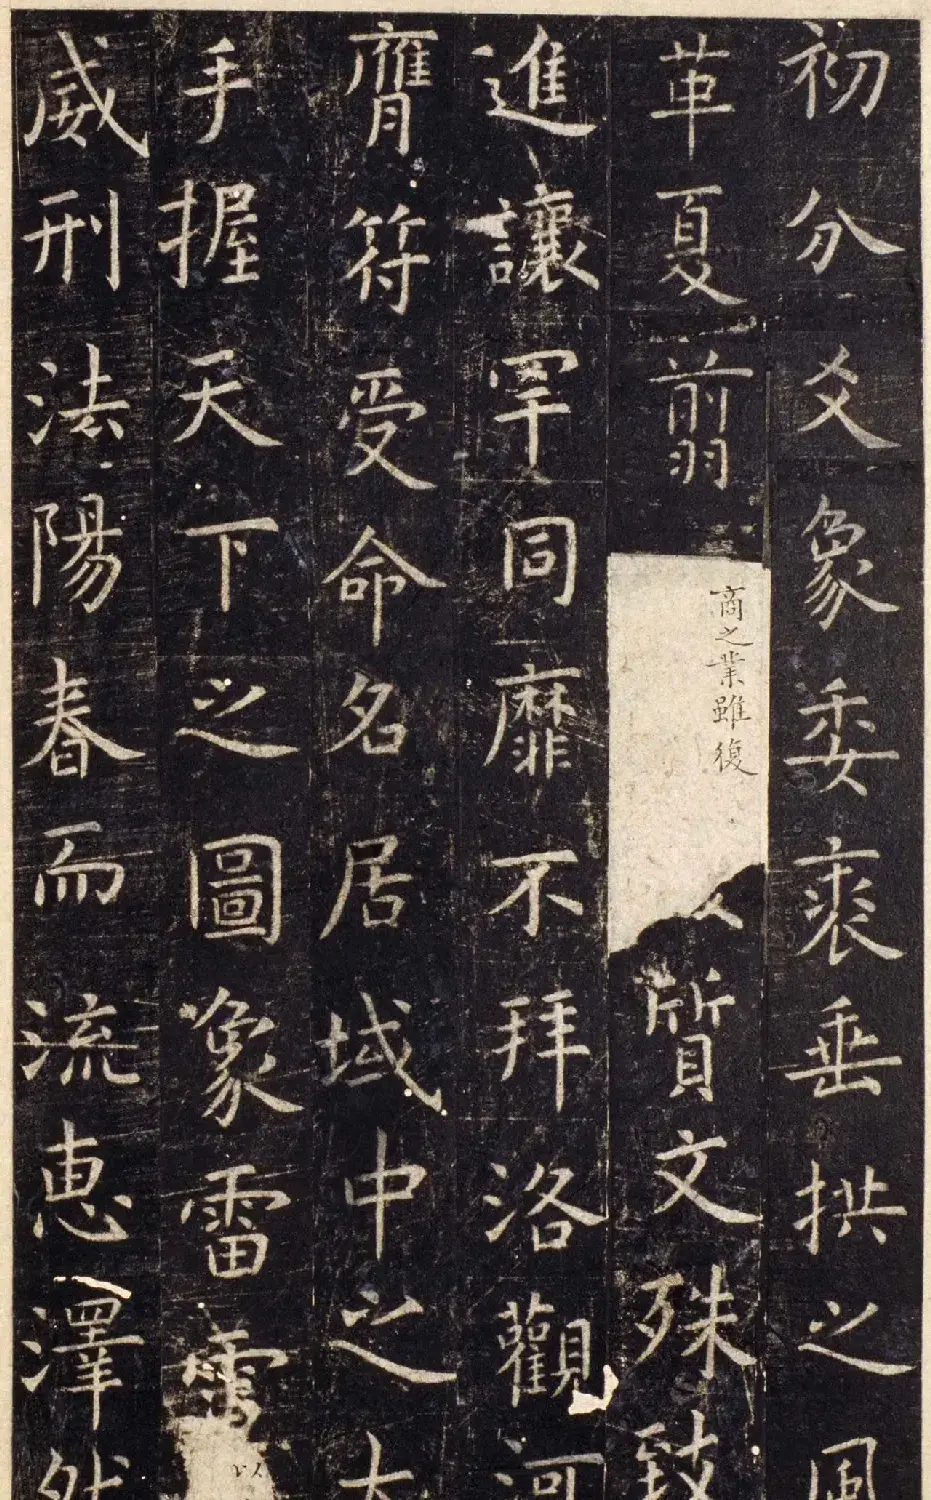 初分爻象委裘垂拱之風
革夏翦
商之業雖復
質文殊致
進讓罕同靡不拜洛觀河
膺符受命名居域中之大
手握天下之圖象雷電
威刑法陽春而流恵澤然